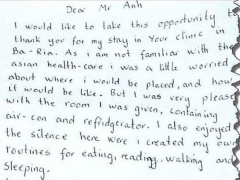 Dear Mr Anh
I would like to take this opportunity to
thank you for my stay in Your clinic in
Ba-Ria. As i am not familiar with the
asian health-care i was a little worried
about where i would be placed, and how
it would be like. But I was very pleased
with the room I was given, containing
air-con and refridgerator. I also enjoyed
the silence here were i created my own
routines for eating, reading, walking and
sleeping.